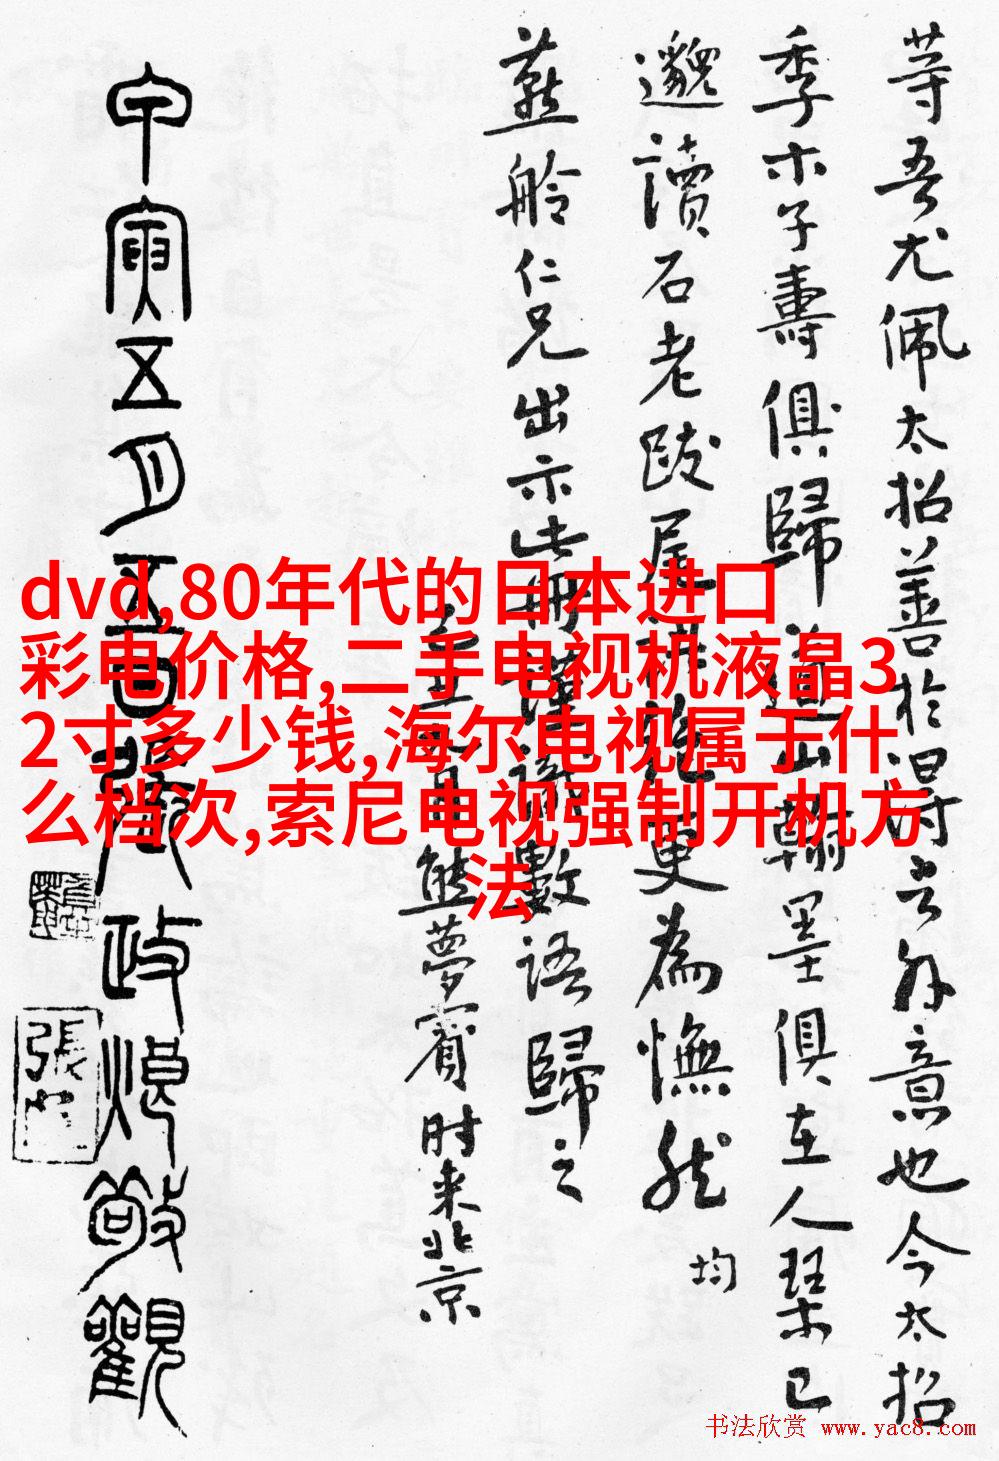 荨吾尤佩太招善於得言外意也今太招
季木子壽俱歸道山翰墨俱在人琴已
邈讀石老跋尾
更為憮然 均
燕舲仁兄出示此冊謹識數語歸之
熊夢賓時来北京
甲寅五月
政烺敬觀
張
dvd,80年代的日本进口
彩电价格,二手电视机液晶3
2寸多少钱,海尔电视属于什
么档次,索尼电视强制开机方
法
书法欣赏 www.yac8.com